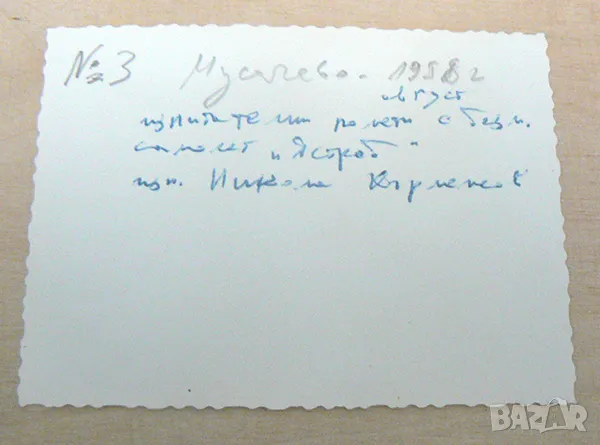 №3 Мусачево. 1958 г
август
изпитателни полети с безм.
самолет „Ястреб"
изп. Никола Кърленков
BAZAR